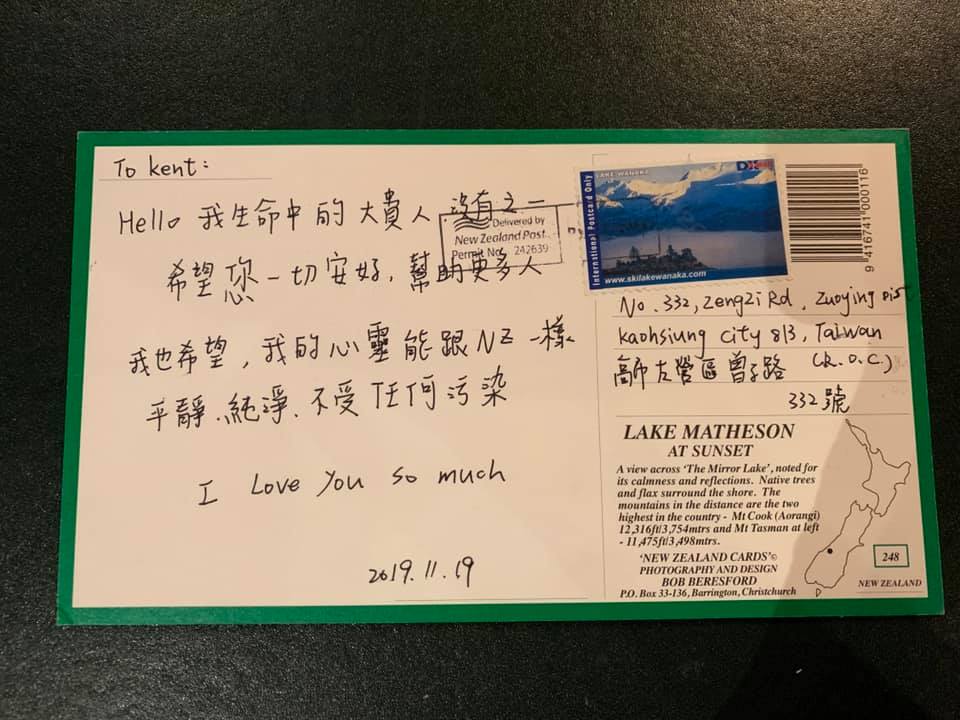 To kent:
Hello 我生命中的大貴人 沒有之一
希望您一切安好, 幫助更多人
我也希望, 我的心靈能跟NZ一樣
平靜、純淨、不受任何污染
I Love You so much
2019.11.19
Delivered by
New Zealand Post
Permit No. 242639
International Postcard Only
LAKE WANAKA
www.skilakewanaka.com
9 416741 000116
No. 332, Zengzi Rd, Zuoying Dist
kaohsiung city 813, Taiwan
高市左營區曾子路 (R.O.C.)
332號
LAKE MATHESON
AT SUNSET
A view across 'The Mirror Lake', noted for
its calmness and reflections. Native trees
and flax surround the shore. The
mountains in the distance are the two
highest in the country - Mt Cook (Aorangi)
12,316ft/3,754mtrs and Mt Tasman at left
- 11,475ft/3,498mtrs.
'NEW ZEALAND CARDS'©
PHOTOGRAPHY AND DESIGN
BOB BERESFORD
P.O. Box 33-136, Barrington, Christchurch
248
NEW ZEALAND